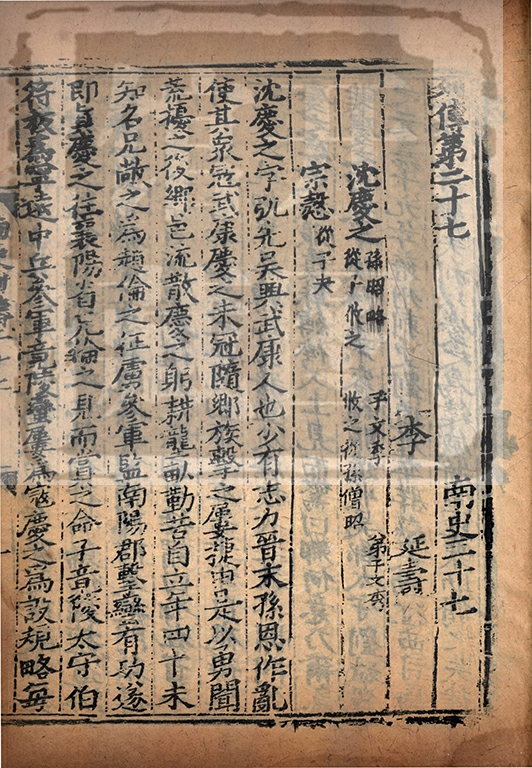 列傳第二十七 南史三十七
李 延壽
沈慶之 孫昭略 子文季 弟子文秀
從子攸之 攸之從孫僧昭
宗慤 從子夬
沈慶之字弘先吳興武康人也少有志力晉末孫恩作亂
使其衆寇武康慶之未冠隨鄉族擊之屢捷由是以勇聞
荒擾之後鄉邑流散慶之躬耕壟畝勤苦自立年四十未
知名兄敞之爲趙倫之征虜參軍監南陽郡擊蠻有功遂
即真慶之往襄陽省兄倫之見而賞之命子竟陵太守伯
符板爲寧遠中兵參軍竟陵蠻屢爲寇慶之爲設規略每